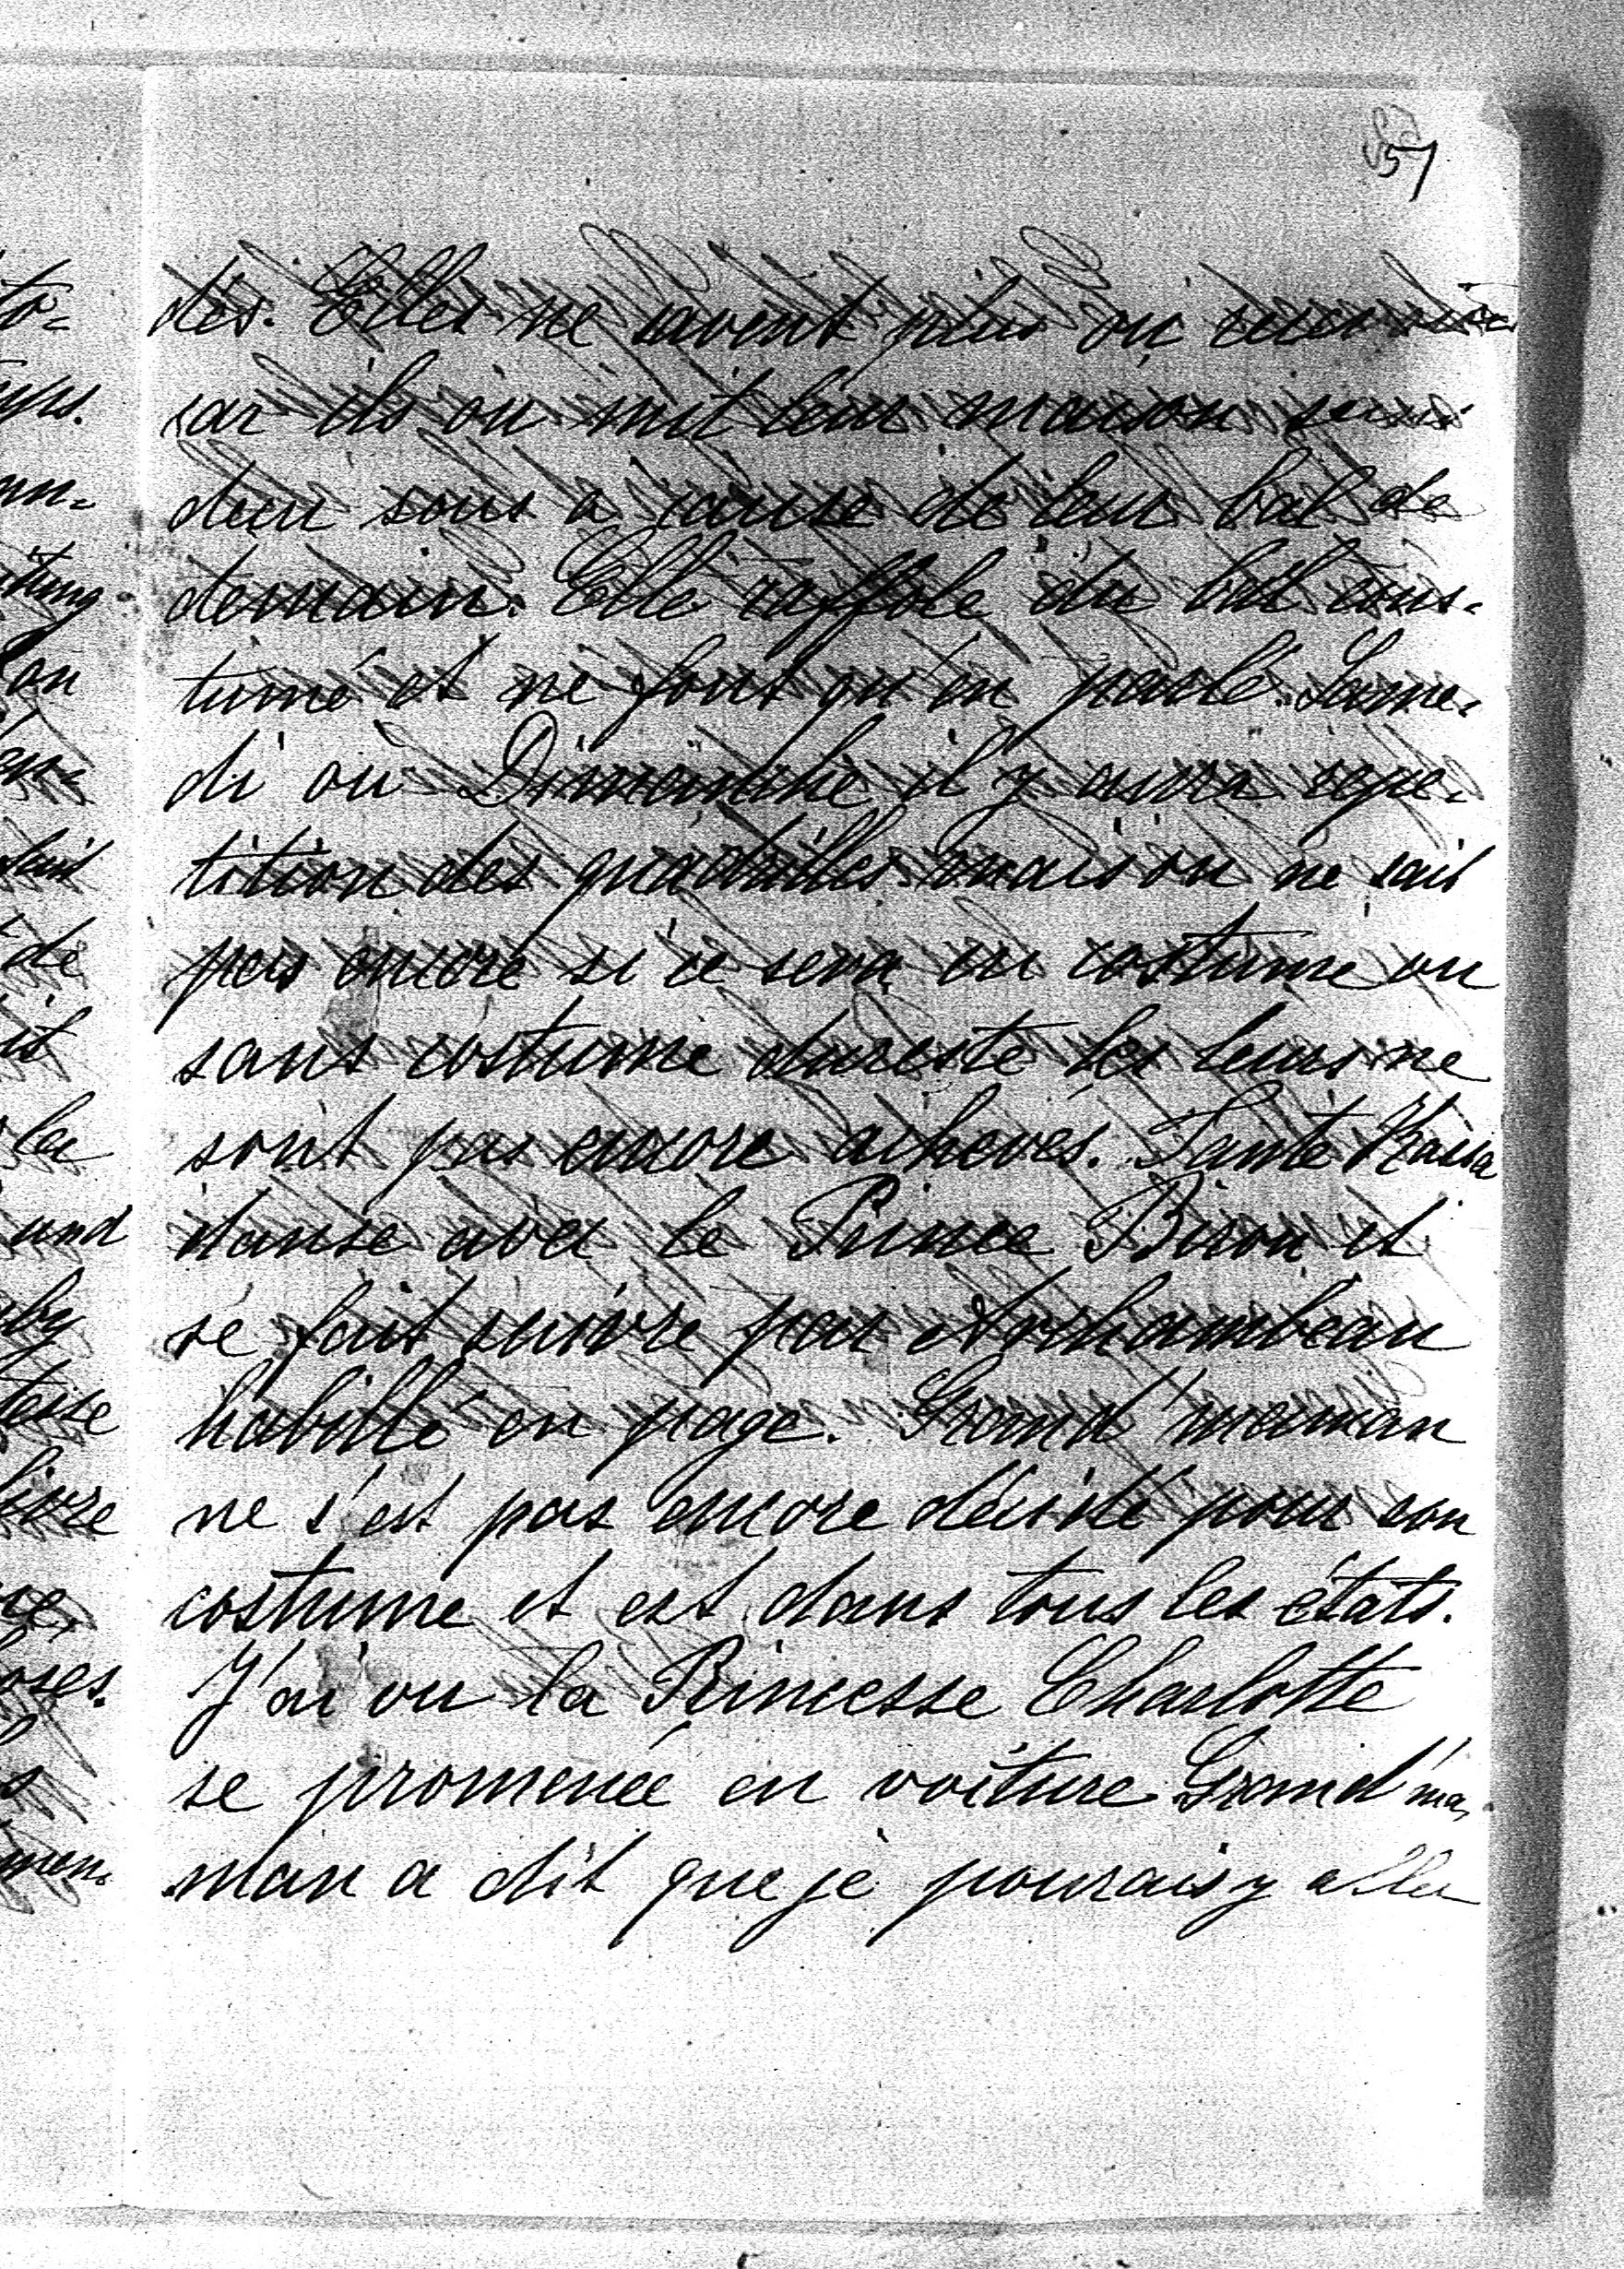 57
dés. Elles ne savent plus où
car ils on mit leur maison sens
deçu sous a cause de leur bal de
demain. Elle raffole du bal cous-
tumé et ne font qu'en parlé. Same-
di ou Dimanche il y aura repe-
tition des quadrilles mais on ne sait
pas encore si ce sera en costume ou
sans costume dureste les leurs ne
sont pas encore acheves. Tante
danse avec le Prince Biron et
se fait suivre par Archambeau
habillé en page. Grand'maman
ne s'est pas encore décidé pour son
costume et est dans tous les états.
J'ai vu la Princesse Charlotte
se promenée en voiture Grand'ma-
man a dit que je pourais y aller